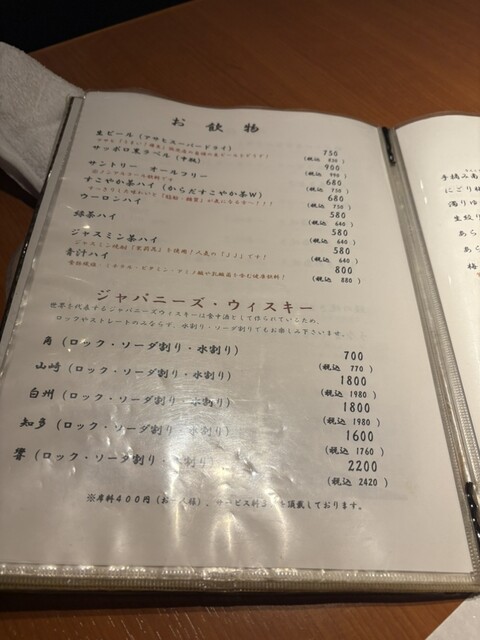 お飲物
生ビール (アサヒスーパードライ) 750
(税込 830)
サッポロ黒ラベル (中瓶) 900
(税込 990)
サントリー オールフリー 680
※ノンアルコール飲料です (税込 750)
すこやか茶ハイ (からだすこやか茶W) 680
(税込 750)
ウーロンハイ 580
(税込 640)
緑茶ハイ 580
(税込 640)
ジャスミン茶ハイ 580
ジャスミン焼酎「茉莉花」を使用!人気の「JJ」です! (税込 640)
青汁ハイ 800
(税込 880)
ジャパニーズ・ウィスキー
世界を代表するジャパニーズウィスキーは食中酒として作られているため、
ロックやストレートのみならず、水割り・ソーダ割りでもお楽しみ下さいませ。
角 (ロック・ソーダ割り・水割り) 700
(税込 770)
山崎 (ロック・ソーダ割り・水割り) 1800
(税込 1980)
白州 (ロック・ソーダ割り・水割り) 1800
(税込 1980)
知多 (ロック・ソーダ割り・水割り) 1600
(税込 1760)
響 (ロック・ソーダ割り・水割り) 2200
(税込 2420)
※席料400円 (お一人様)、サービス料 を頂戴しております。
手摘みあ
にごり
濁りゆ
生絞り
あら
あら
梅